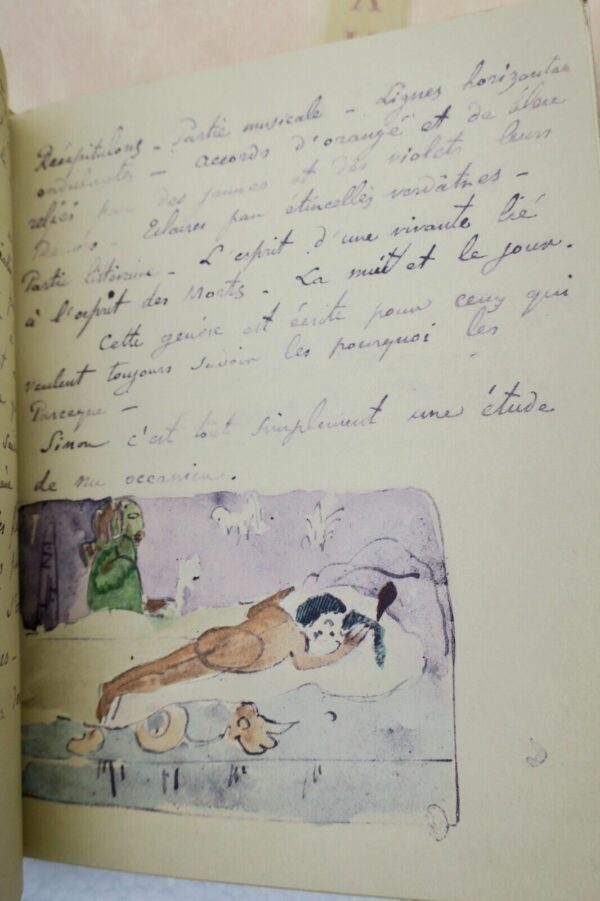 Récapitulons - Partie musicale - Lignes horizontales
ondulantes - accords d'orangé et de bleu
reliés par des jaunes et des violets leurs
Eclairés par étincelles verdâtres -
Partie littéraire - L'esprit d'une vivante lié
à l'esprit des Morts - La nuit et le jour.
Cette genèse est écrite pour ceux qui
veulent toujours savoir les pourquoi les
Parceque -
Sinon c'est tout simplement une étude
de nu océanien.